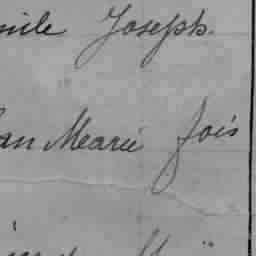 mile Joseph
an Marie fois